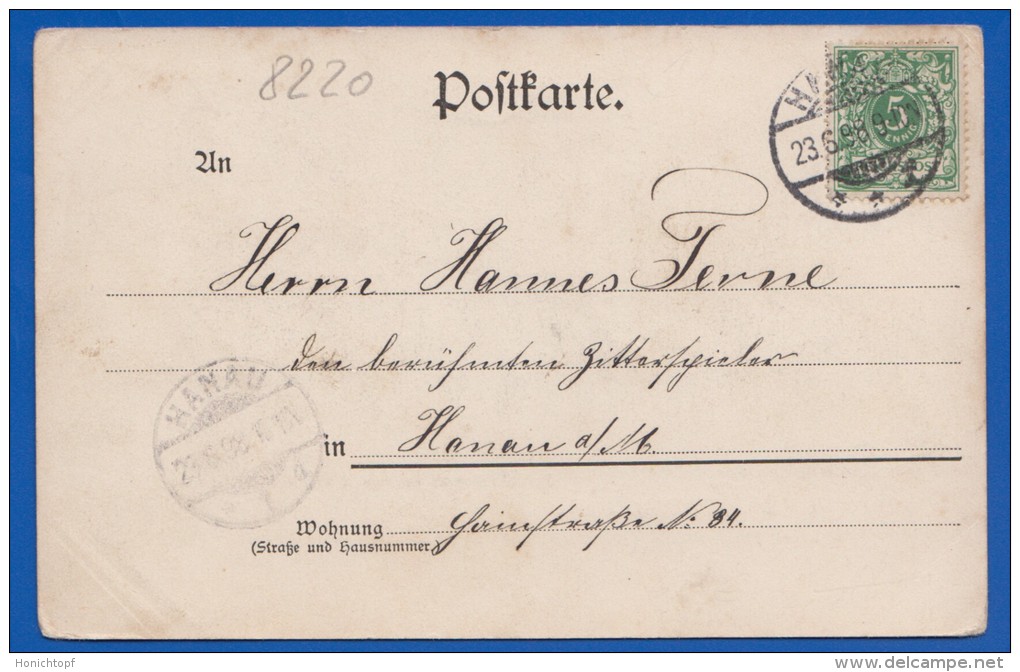 8220
Postkarte.
HANAU
23.6.98.9-10N
5
PFENNIG
An
Herrn Hannes Ferne
den berühmten Zitterspieler
HANAU
in Hanau a/M.
Wohnung Hainstraße No. 34.
(Straße und Hausnummer)
Honichtopf
www.delcampe.net